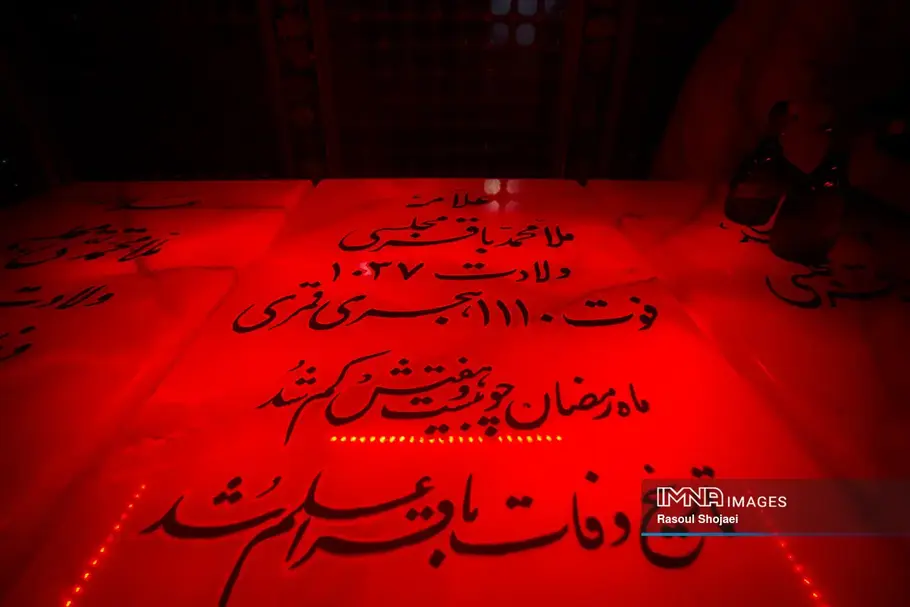 علامه
ملا محمد باقر مجلسی
ولادت ۱۰۳۷
فوت ۱۱۱۰ هجری قمری
ماه رمضان چو بیست و هفتش کم شد
تاریخ وفات باقر اعلم شد
ولادت
IMNA IMAGES
Rasoul Shojaei